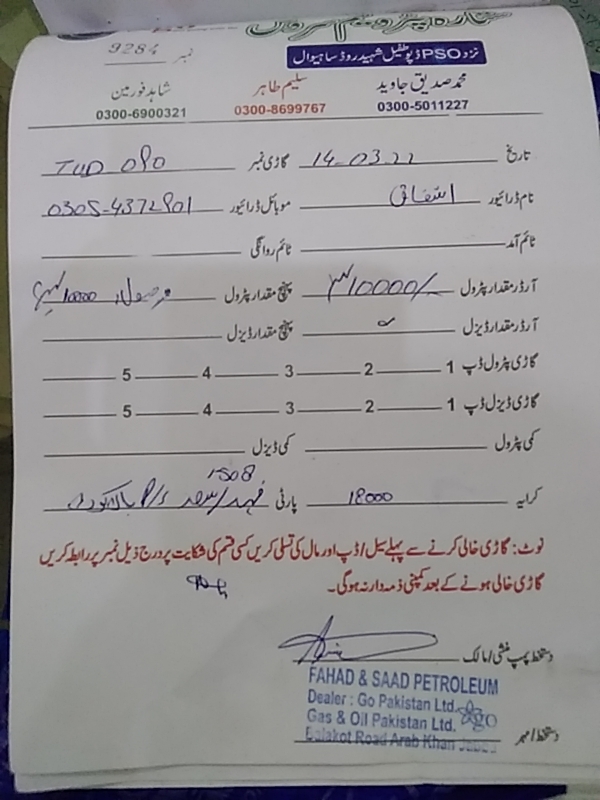 نمبر 9284
نزد PSO ڈپو طفیل شہید روڈ ساہیوال
محمد صدیق جاوید سلیم طاہر شاہد فورمین
0300-5011227 0300-8699767 0300-6900321
تاریخ 14-03-22 گاڑی نمبر TUD 090
نام ڈرائیور اشفاق موبائل ڈرائیور 0305-4372901
ٹائم آمد ٹائم روانگی
آرڈر مقدار پٹرول 10000/- پہنچ مقدار پٹرول 10000
آرڈر مقدار ڈیزل پہنچ مقدار ڈیزل
گاڑی پٹرول ڈپ 1 2 3 4 5
گاڑی ڈیزل ڈپ 1 2 3 4 5
کمی پٹرول کمی ڈیزل
1508
کرایہ 18000 پارٹی فہد/سعد P/S بالاکوٹ
نوٹ: گاڑی خالی کرنے سے پہلے سیل/ڈپ اور مال کی تسلی کریں کسی قسم کی شکایت پر درج ذیل نمبر پر رابطہ کریں
گاڑی خالی ہونے کے بعد کمپنی ذمہ دار نہ ہوگی۔
دستخط پمپ منشی/مالک
FAHAD & SAAD PETROLEUM
Dealer : Go Pakistan Ltd.
Gas & Oil Pakistan Ltd. go
Balakot Road Arab Khan
دستخط/مہر